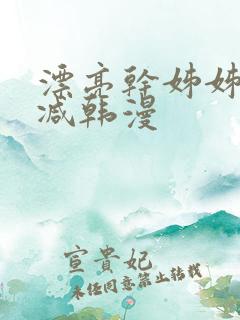 漂亮幹姊姊
减韩漫
宣貴妃
未经同意禁止转载